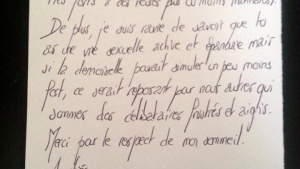 De plus, je suis ravie de savoir que tu
as une vie sexuelle active et épanouie mais
si la demoiselle pouvait simuler un peu moins
fort, ce serait reposant par nous autres qui
sommes des célibataires frustrés et aigris.
Merci par le respect de mon sommeil.